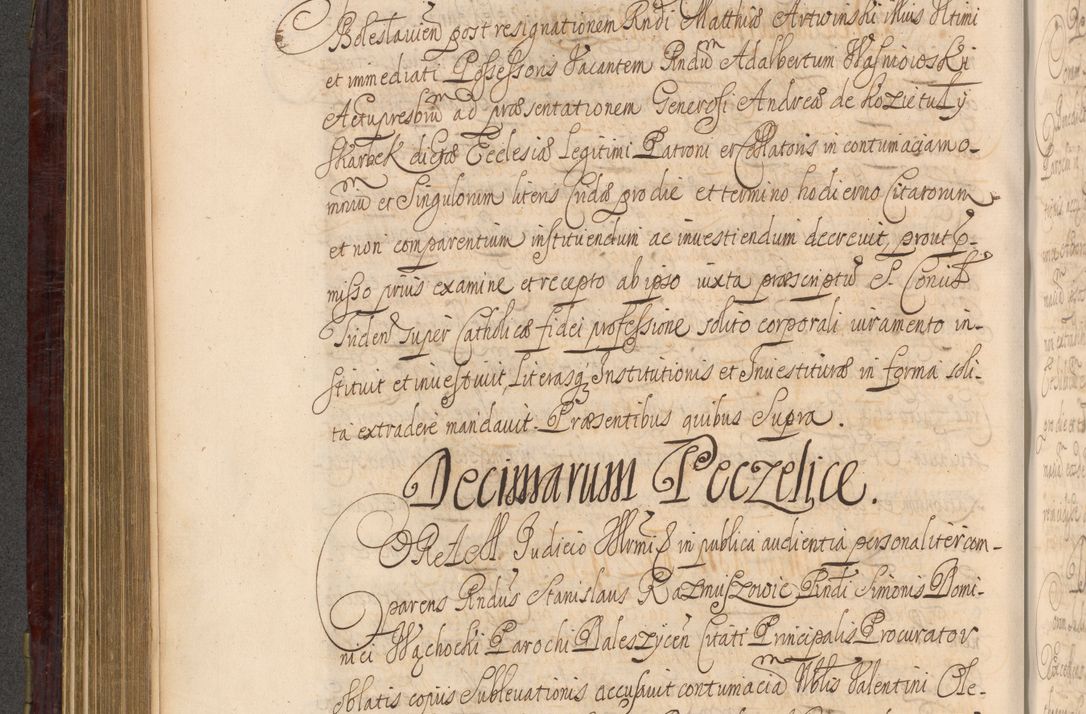 Boleslavien post resignationem Rndi Matthiæ Artwinski illius ultimi
et immediati Possessoris vacantem Rndum Adalbertum Wasniowski
Actupresbrum ad præsentationem Generosi Andreæ de Kozietuly
Skarbek dictæ Ecclesiæ Legitimi Patroni et Collatoris in contumaciam o-
mnium et Singulorum literis Crudæ pro die et termino hodierno Citatorum
et non comparentium instituendum ac investiendum decrevit, prout p-
misso prius examine et recepto ab ipso iuxta præscriptu S. Concil
Triden super Catholicæ fidei professione solito corporali iuramento in-
stituit et investivit, Literasq Institutionis et Investituræ in forma soli-
ta extradere mandavit. Præsentibus quibus Supra.
Decimarum Peczelice.
In publica audientia personaliter com-
parens Rndus Stanislaus Razmuszowic Rndi Simonis Domi-
nici Wąchocki Parochi Daleszycen Citati Principalis Procurator
oblatis copiis Sublevationis accusavit contumaciā Nblis Valentini Ole-